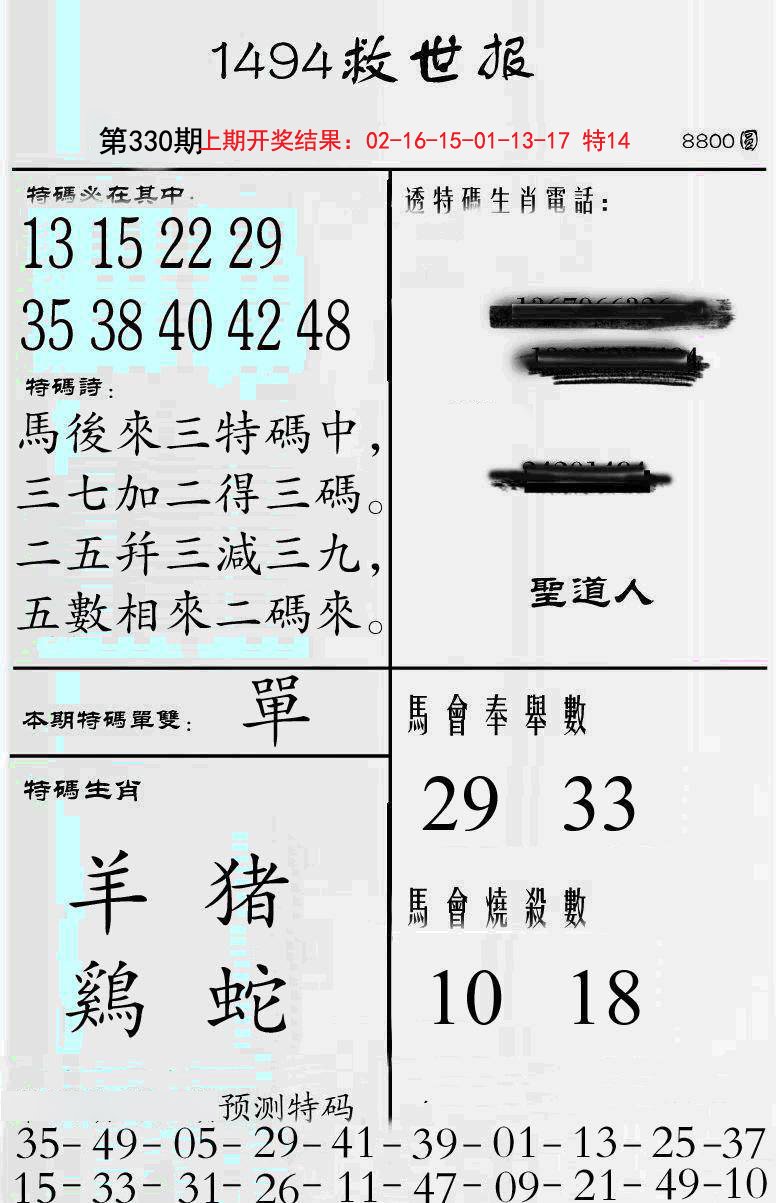 1494救世报
第330期上期开奖结果：02-16-15-01-13-17 特14 8800圓
特碼必在其中：
13 15 22 29
35 38 40 42 48
特碼詩：
馬後來三特碼中，
三七加二得三碼。
二五幷三減三九，
五數相來二碼來。
透特碼生肖電話：
聖道人
本期特碼單雙：單
特碼生肖
羊 猪
鷄 蛇
馬會奉舉數
29 33
馬會燒殺數
10 18
预测特码
35-49-05-29-41-39-01-13-25-37
15-33-31-26-11-47-09-21-49-10